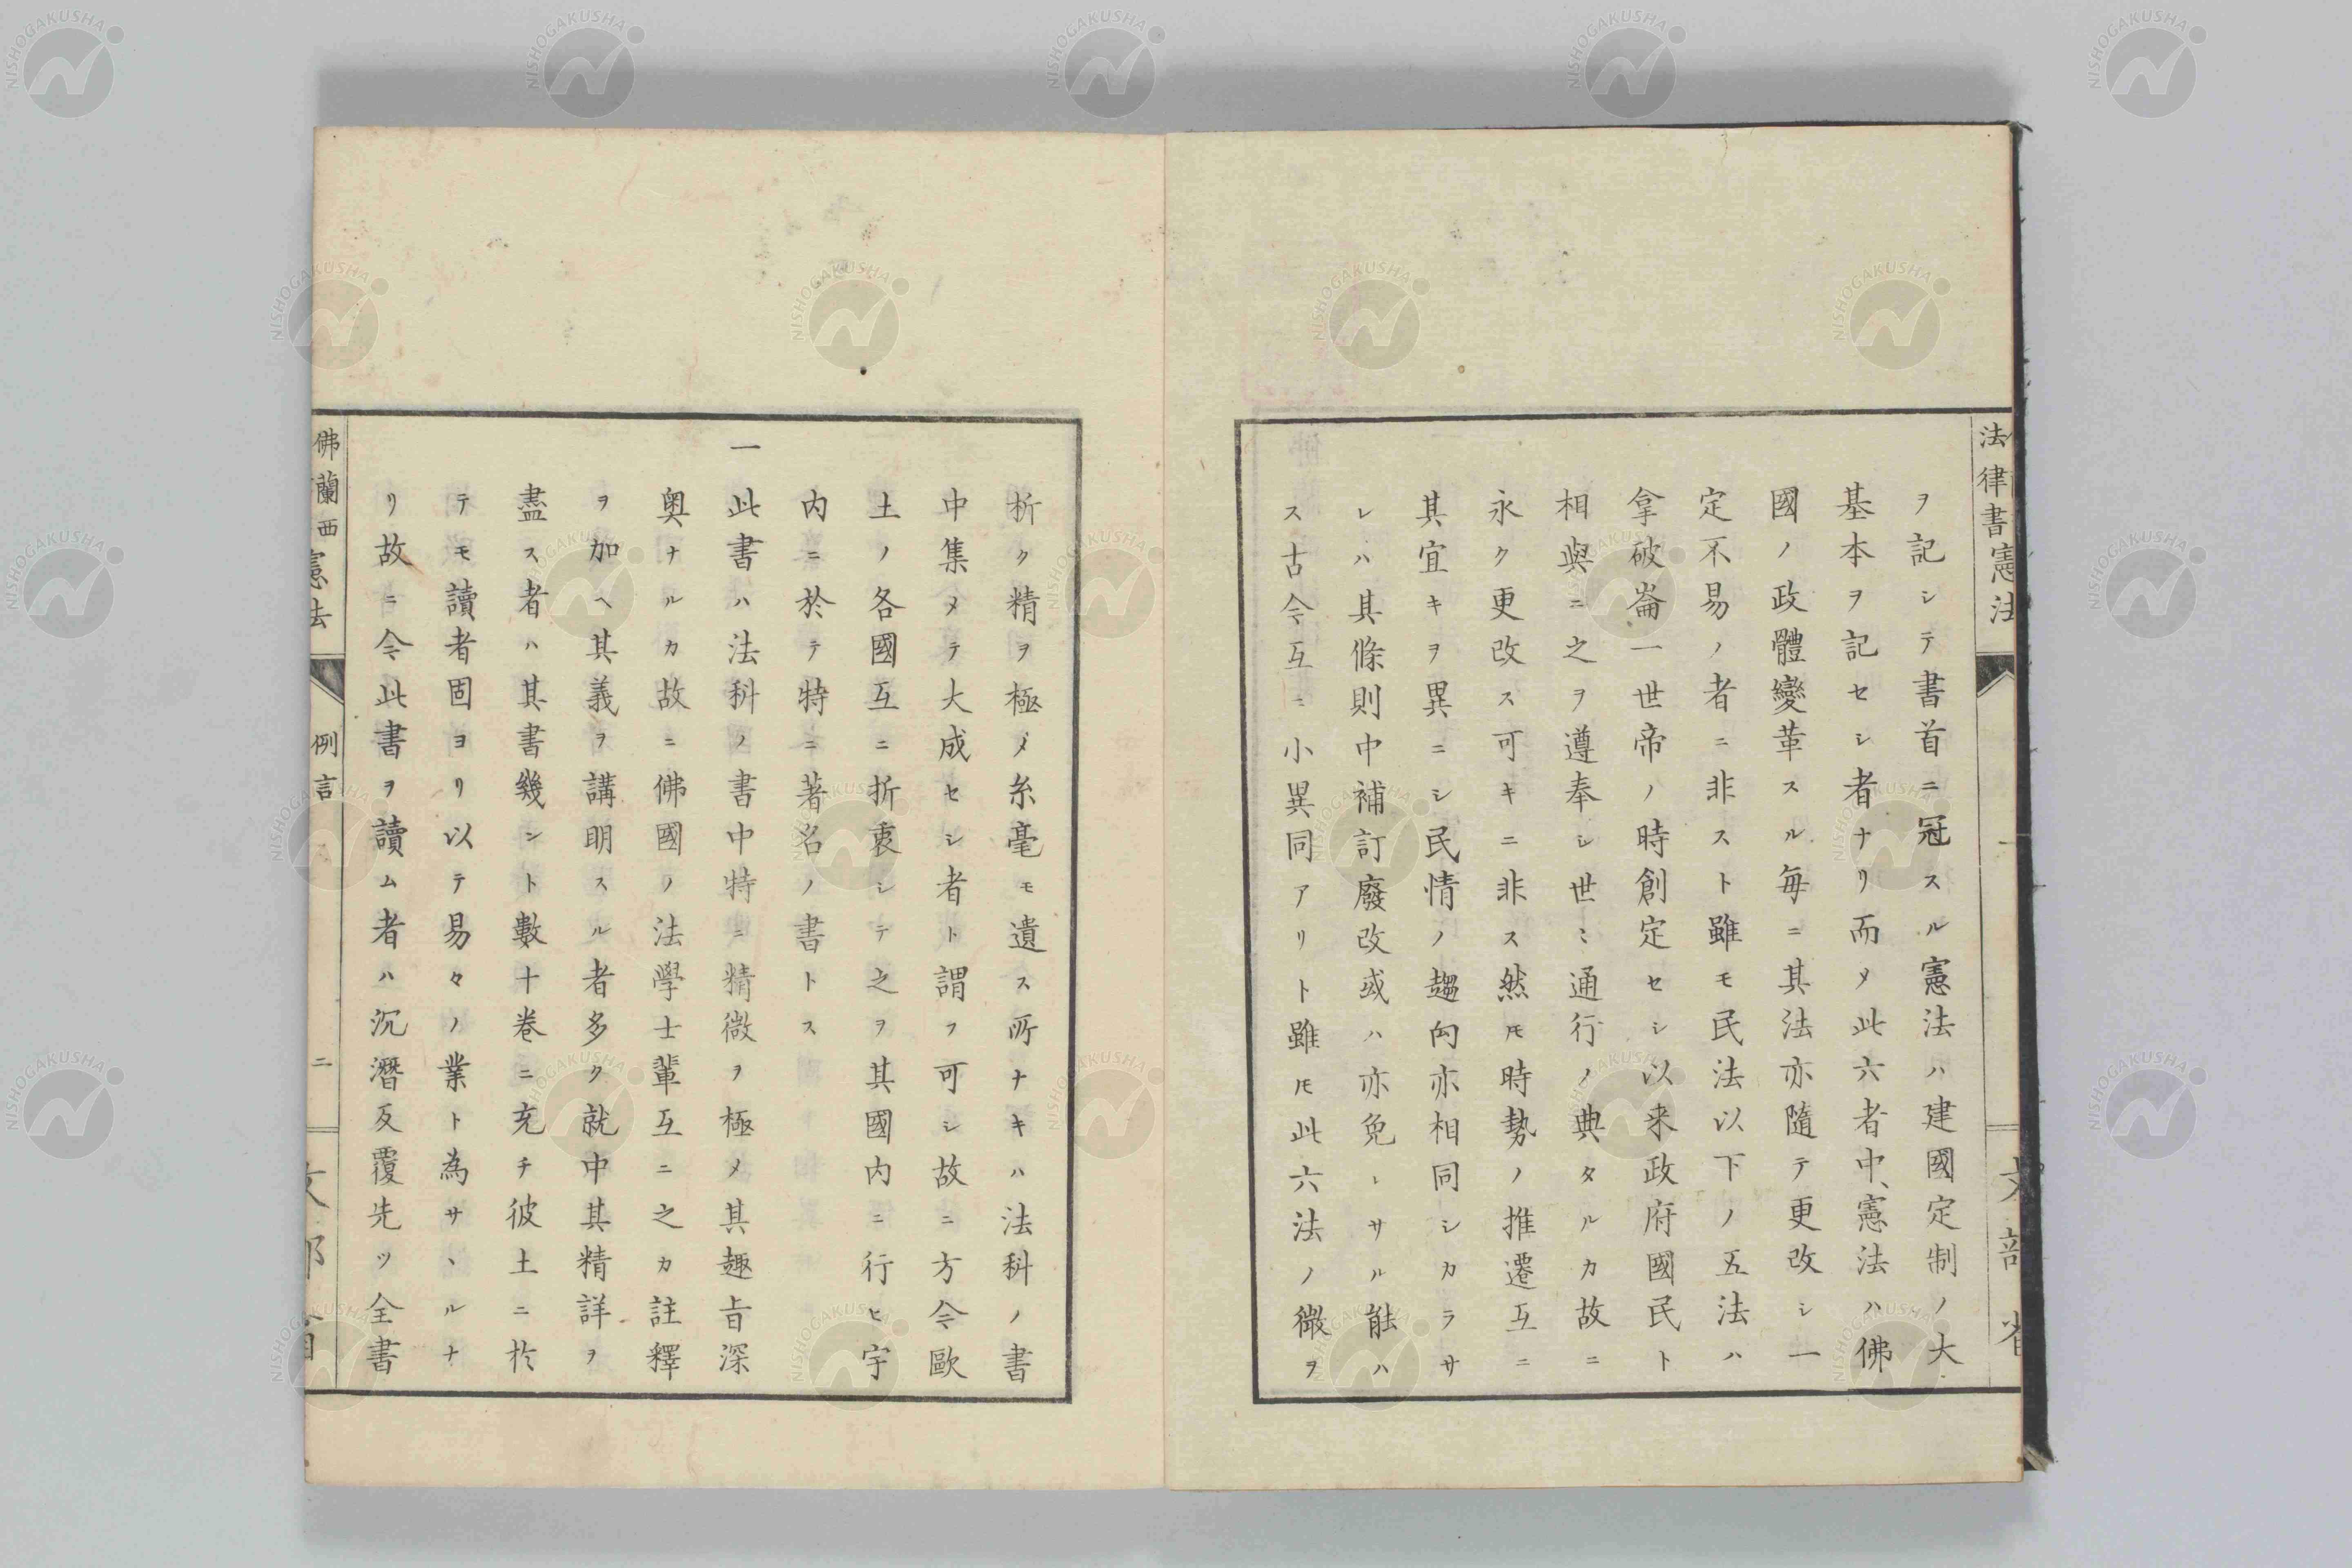 法律書憲法
文部省
ヲ記シテ書首ニ冠スル憲法ハ建國定制ノ大
基本ヲ記セシ者ナリ而メ此六者中、憲法ハ佛
國ノ政體變革スル毎ニ其法亦隨テ更改シ一
定不易ノ者ニ非スト雖モ民法以下ノ五法ハ
拿破崙一世帝ノ時創定セシ以来政府國民ト
相與ニ之ヲ遵奉シ世〻通行ノ典タルカ故ニ
永ク更改ス可キニ非ス然㆑𪜈時勢ノ推遷互ニ
其宜キヲ異ニシ民情ノ趨向亦相同シカラサ
レハ其條則中補訂廢改或ハ亦免ヽサル能ハ
ス古今互ニ小異同アリト雖𪜈此六法ノ微ヲ
析ク精ヲ極メ糸毫モ遺ス所ナキハ法科ノ書
中集メテ大成セシ者ト謂フ可シ故ニ方今歐
土ノ各國互ニ折衷シテ之ヲ其國内ニ行ヒ宇
内ニ於テ特ニ著名ノ書トス
一此書ハ法科ノ書中特ニ精微ヲ極メ其趣旨深
奥ナルカ故ニ佛國ノ法學士輩互ニ之カ註釋
ヲ加ヘ其義ヲ講明スル者多ク就中其精詳ヲ
盡ス者ハ其書幾ント數十卷ニ充チ彼土ニ於
テモ讀者固ヨリ以テ易々ノ業ト為サヽルナ
リ故ニ今此書ヲ讀ム者ハ沉潛反覆先ツ全書
佛蘭西憲法
例言
二
文部省